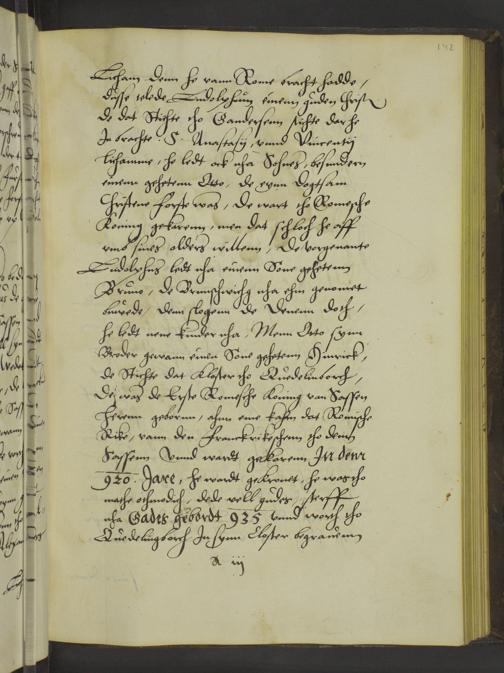 142
Licham denn he vann Rome bracht hadde,
disse telede Ludolphum einenn guden Christ
de dat Stichte tho Ganderßem stichte dar he
In brachte S. Anastasij, vnnd Vincentij
lichamme, he ledt ock nha Sohns, besundern
einenn geheten Otto, de eynn dogtsam
Christene forste was, De wart tho Romesche
Koning gekarenn, men dat schloch he aff
vmb sines olders willenn, De vorgenante
Ludolphus ledt nha einenn Sone geheten
Bruno, de Brunschwigh nha ehm genomet
buwede, denn slogenn de Denenn doth,
he ledt nene kinder nha, Menn Otto synn
Broder gewann einen Sone gehetenn Hinrick,
de Stichte dat Kloster tho Quedelinborch,
De was de Erste Romesche Koning van Sassen
herenn gebornn, ahnn eme kam dat Romische
Rike, vann den Franckrikeschenn tho denn
Sassenn Vnnd wardt gekarenn In denn
920. Jare, he wardt gekronet, he was tho
mathe othmodich, dede vell gudes, sterff
nha Gades gebordt 935 vnnd warth tho
Quedelingborch In synn Closter begrauenn
A iij